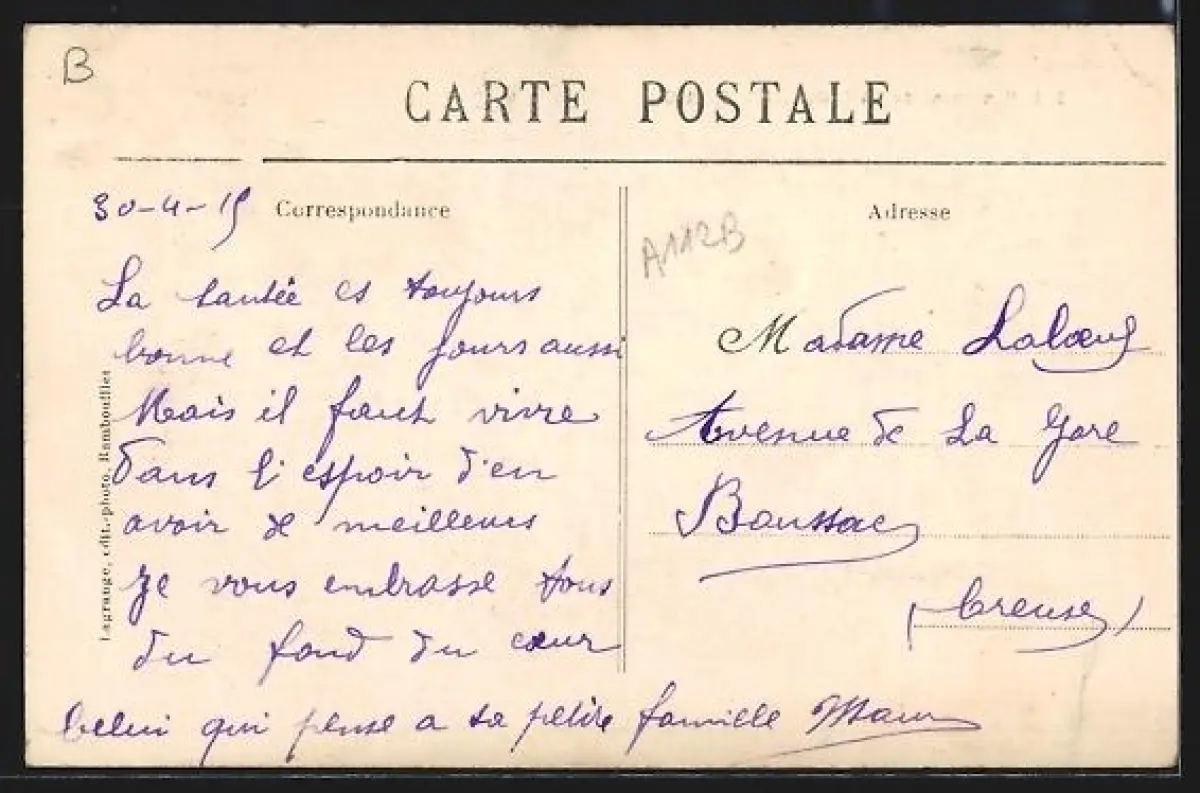 B
CARTE POSTALE
30-4-15 Correspondance
La santée es toujours
bonne et les jours aussi
Mais il faut vivre
dans l'espoir d'en
avoir de meilleurs
Je vous embrasse tous
du fond du cœur
Celui qui pense a sa petite famille
Lagrange, édit.-photo, Rambouillet
Adresse
A112B
Madame
Avenue de La Gare
Boussac
(Creuse)